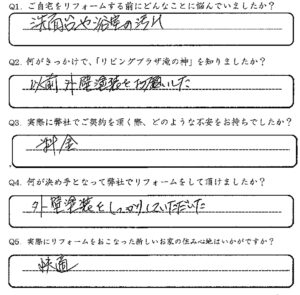 Q1. ご自宅をリフォームする前にどんなことに悩んでいましたか？
洗面台や浴室の汚れ
Q2. 何がきっかけで、「リビングプラザ滝の神」を知りましたか？
以前外壁塗装をお願いした
Q3. 実際に弊社でご契約を頂く際、どのような不安をお持ちでしたか？
料金
Q4. 何が決め手となって弊社でリフォームをして頂けましたか？
外壁塗装をしっかりしていただいた
Q5. 実際にリフォームをおこなった新しいお家の住み心地はいかがですか？
快適